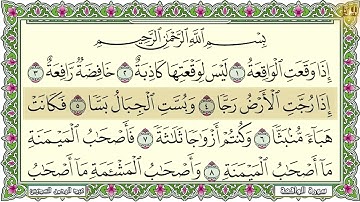 بِسْمِ اللَّهِ الرَّحْمَٰنِ الرَّحِيمِ
إِذَا وَقَعَتِ الْوَاقِعَةُ ١ لَيْسَ لِوَقْعَتِهَا كَاذِبَةٌ ٢ خَافِضَةٌ رَّافِعَةٌ ٣
إِذَا رُجَّتِ الْأَرْضُ رَجًّا ٤ وَبُسَّتِ الْجِبَالُ بَسًّا ٥ فَكَانَتْ
هَبَاءً مُّنبَثًّا ٦ وَكُنتُمْ أَزْوَاجًا ثَلَاثَةً ٧ فَأَصْحَابُ الْمَيْمَنَةِ
مَا أَصْحَابُ الْمَيْمَنَةِ ٨ وَأَصْحَابُ الْمَشْأَمَةِ مَا أَصْحَابُ
سورة الواقعة